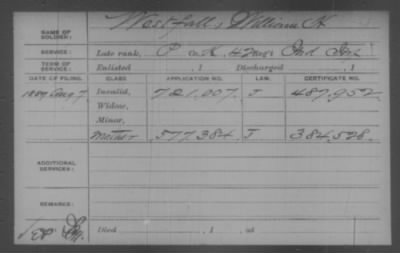 NAME OF SOLDIER: Westfall, William H
SERVICE: Late rank, P Co. K, 42 Reg't Ind Inf
TERM OF SERVICE: Enlisted , 1 Discharged , 1
DATE OF FILING. CLASS. APPLICATION NO. LAW. CERTIFICATE NO.
1889 Aug 7 Invalid, 721.007. J 487.952.
Widow,
Minor,
Mother 577.384. J 384.528.
ADDITIONAL SERVICES:
REMARKS:
Died , 1 , at